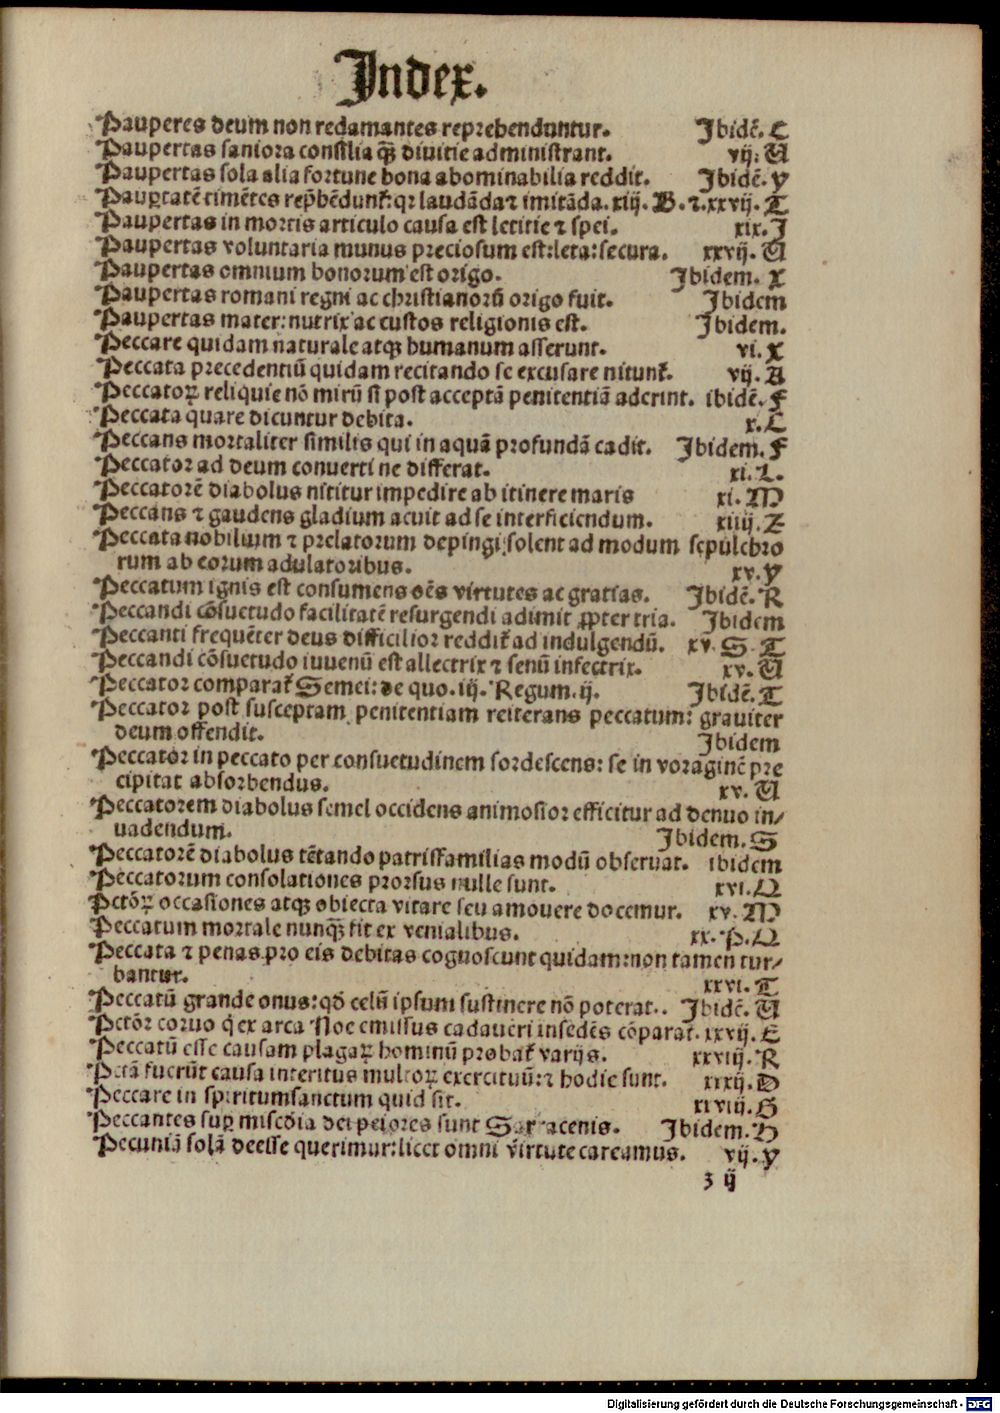 Index.
Pauperes deum non redamantes reprehenduntur. Ibidē. C
Paupertas saniora consilia qȝ̄ divitie administrant. vij. U
Paupertas sola alia fortune bona abominabilia reddit. Ibidē. Y
Paup̱tatē timētes rep̄hēdunt᷑: qꝛ laudāda ⁊ imitāda. xiij. B. ⁊. xxvij. T
Paupertas in mortis articulo causa est letitie ⁊ spei. xix. I
Paupertas voluntaria munus preciosum est: leta: secura. xxvij. U
Paupertas omnium bonorum est origo. Ibidem. X
Paupertas romani regni ac christianorū origo fuit. Ibidem
Paupertas mater: nutrix ac custos religionis est. Ibidem.
Peccare quidam naturale atqȝ humanum asserunt. vi. X
Peccata precedentiū quidam recitando se excusare nitunt᷑. vij. A
Peccatoꝝ reliquie nō mirū si post acceptā penitentiā aderint. ibidē. F
Peccata quare dicuntur debita. x. C
Peccans mortaliter similis qui in aquā profundā cadit. Ibidem. F
Peccator ad deum converti ne differat. xi. L.
Peccatorē diabolus nititur impedire ab itinere maris xi. M
Peccans ⁊ gaudens gladium acuit ad se interficiendum. xiiij. Z
Peccata nobilium ⁊ prelatorum depingi solent ad modum sepulchro
rum ab eorum adulatoribus. xv. Y
Peccatum ignis est consumens oēs virtutes ac gratias. Ibidē. R
Peccandi cōsuetudo facilitatē resurgendi adimit ꝓpter tria. Ibidem
Peccanti frequēter deus difficilior reddit᷑ ad indulgendū. xv. S. T
Peccandi cōsuetudo iuvenū est allectrix ⁊ senū infectrix. xv. U
Peccator comparat᷑ Semei: de quo. iij. Regum. ij. Ibidē. T
Peccator post susceptam penitentiam reiterans peccatum: graviter
deum offendit. Ibidem
Peccator in peccato per consuetudinem sordescens: se in voraginē pre
cipitat absorbendus. xv. U
Peccatorem diabolus semel occidens animosior efficitur ad denuo in/
vadendum. Ibidem. S
Peccatorē diabolus tētando patrisfamilias modū observat. ibidem
Peccatorum consolationes prorsus nulle sunt. xvi. Q
Pctōꝝ occasiones atqȝ obiecta vitare seu amovere docemur. xv. M
Peccatum mortale nunqȝ̄ fit ex venialibus. xx. P. Q
Peccata ⁊ penas pro eis debitas cognoscunt quidam: non tamen tur/
bantur. xxvi. T
Peccatū grande onus: qd̄ celū ipsum sustinere nō poterat. . Ibidē. U
Pctōr corvo q̇ ex arca Noe emissus cadaveri insedēs cōparat᷑. xxvij. E
Peccatū esse causam plagaꝝ hominū probat᷑ varijs. xxviij. R
Pctā fuerūt causa interitus multoꝝ exercituū: ⁊ hodie sunt. xixij. D
Peccare in spiritumsanctum quid sit. xlviij. G
Peccantes sup̱ mis̄cdia dei peiores sunt Sarracenis. Ibidem. H
Pecuniā solā deesse querimur: licet omni virtute careamus. vij. Y
ʒ ij
Digitalisierung gefördert durch die Deutsche Forschungsgemeinschaft - DFG